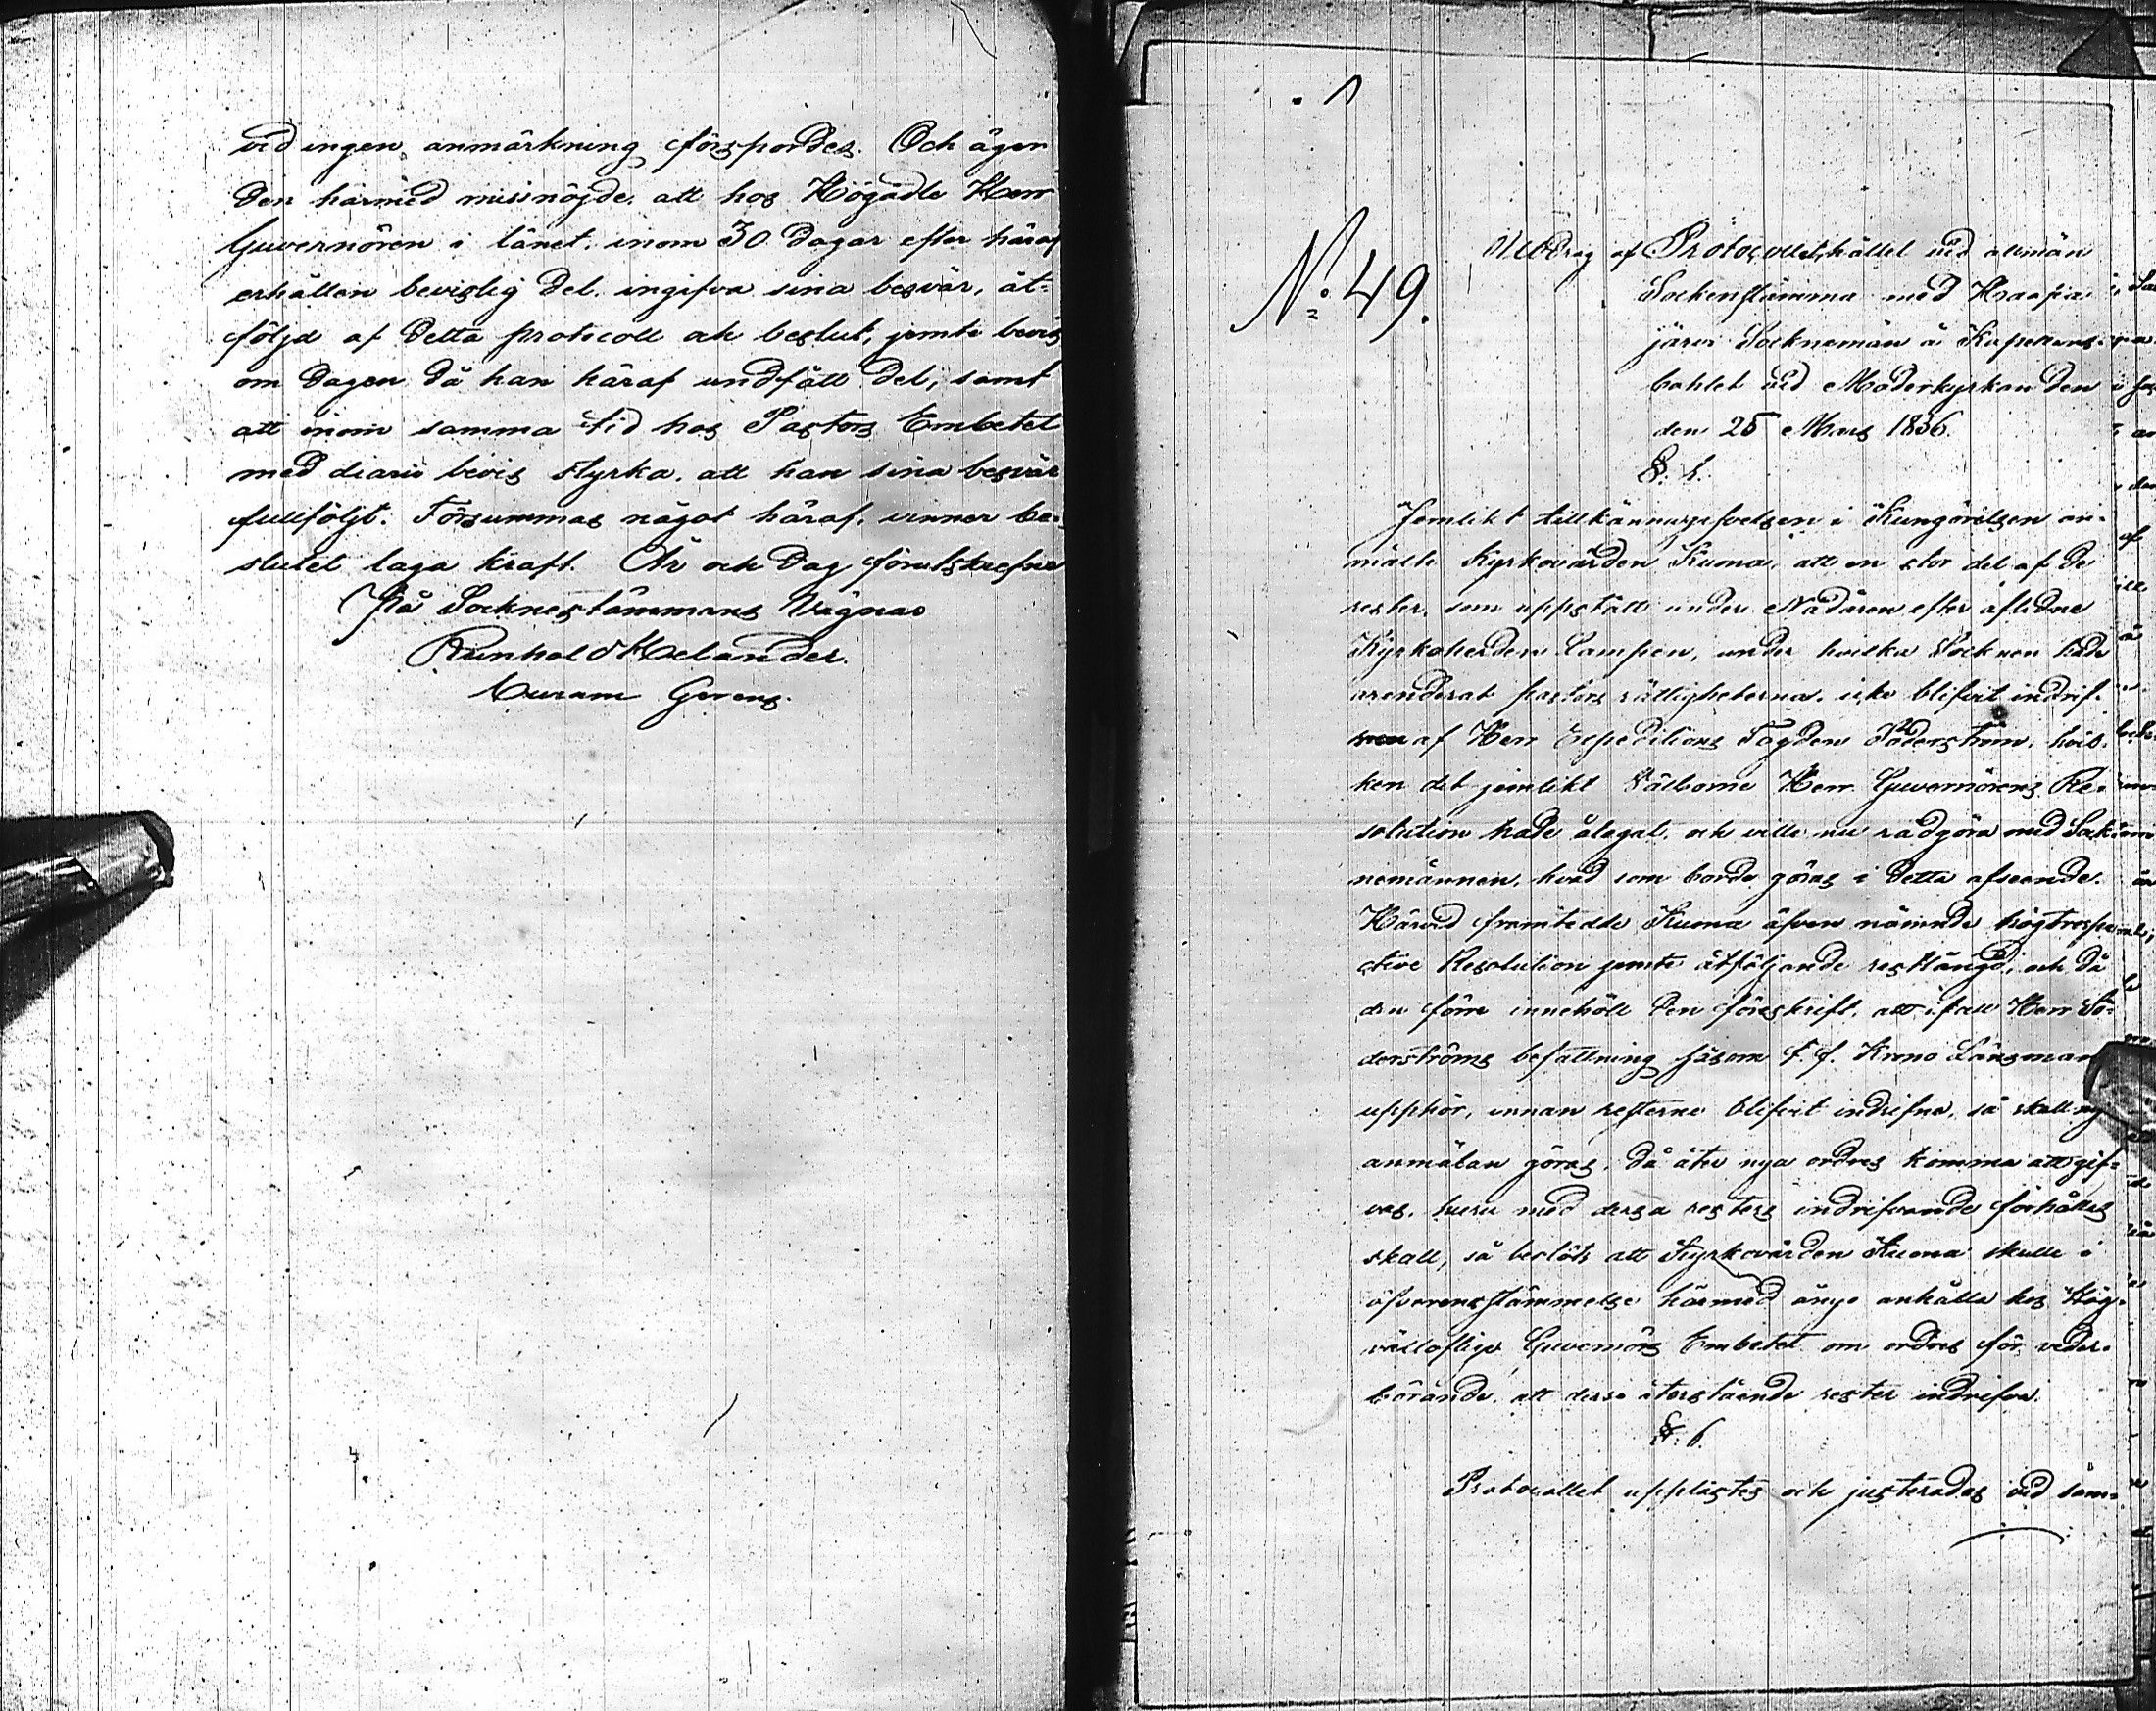 vid ingen anmärkning förspordes. Och ägen
den härmed missnöjde, att hos Högädle Herr
Guvernören i länet, inom 30 dagar efter häraf
erhållen bevislig del, ingifva sina besvär, åt-
följde af detta protocoll och beslut, jemte bevis
om dagen då han häraf undfått del, samt
att inom samma tid hos Pastors Embetet
med diarii bevis styrka, att han sina besvär
fullföljt. Försummas något häraf, vinner be-
slutet laga kraft. År och dag förutskrefne
På Socknestämmans Vägnar
Reinhold Helander.
Curam Gerens.
1
No 49.
Utdrag af Protocollet, hållet vid allmän
Sockenstämma med Haapa-
järvi Socknemän å Kapellans-
bohlet vid Moderkyrkan den
den 25 Mars 1836.
§. 1.
Jemlikt tillkännagifvelsen i Kungörelsen an-
mälte Kyrkovärden Kuona, att en stor del af de
rester, som uppstått under Nådåren efter aflidne
Kyrkoherden Campen, under hvilka Socknen hade
arenderat pastors rättigheterna, icke blifvit indrif-
af Herr Expeditions Fogden Söderström, hvil-
ken det jemlikt Välborne Herr Guvernörens Re-
solution hade ålegat, och ville nu rådgöra med Sock-
nemännen, hvad som borde göras i detta afseende.
Härvid framtedde Kuona äfven nämnde högtrespe-
ctive Resolution jemte åtföljande restlängd, och då
den förre innehöll den föreskrift, att ifall Herr Sö-
derströms befattning såsom t. f. Krono Länsman
upphör, innan resterne blifvit indrifne, så skall ny
anmälan göras, då åter nya ordres komma att gif-
vas, huru med dessa resters indrifvande förhållas
skall, så beslöts att Kyrkovärden Kuona skulle i
öfverensstämmelse härmed ånyo anhålla hos Hög-
välloflige Guvernörs Embetet om ordres för veder-
börande, att desse återstående rester indrifva.
§. 6.
Protocollet upplästes och justerades vid sam-